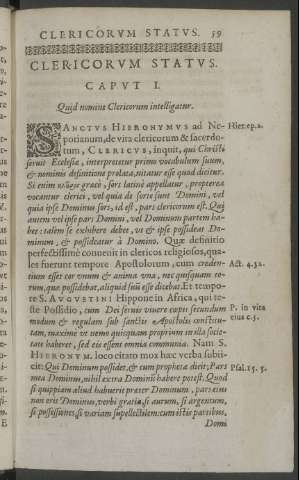 CLERICORVM STATVS. 59
CLERICORVM STATVS.
CAPVT I.
Quid nomine Clericorum intelligatur.
SANCTVS HIERONYMVS ad Ne- Hier. ep. 2.
potianum, de vita clericorum & sacerdo-
tum, CLERICVS, inquit, qui Christi
seruit Ecclesiæ, interpretetur primo vocabulum suum,
& nominis definitione prolata, nitatur esse quod dicitur.
Si enim κλῆρος græcè, sors latinè appellatur, propterea
vocantur clerici, vel quia de sorte sunt Domini, vel
quia ipse Dominus sors, id est, pars clericorum est. Qui
autem vel ipse pars Domini, vel Dominum partem ha-
bet: talem se exhibere debet, vt & ipse possideat Do-
minum, & possideatur à Domino. Quæ definitio
perfectissimè conuenit in clericos religiosos, qua-
les fuerunt tempore Apostolorum, cum creden- Act. 4. 32.
tium esset cor vnum & anima vna, nec quisquam eo-
rum, quæ possidebat, aliquid suũ esse dicebat. Et tempo-
re S. AVGVSTINI Hippone in Africa, qui te-
ste Possidio, cum Dei seruis viuere cœpit secundum P. in vita
modum & regulam sub sanctis Apostolis constitu- eius c. 5.
tam, maximè vt nemo quicquam proprium in illa socie-
tate haberet, sed eis essent omnia communia. Nam S.
HIERONYM. loco citato mox hæc verba subii-
cit: Qui Dominum possidet, & cum propheta dicit; Pars Psal. 15. 5.
mea Dominus, nihil extra Dominũ habere potest. Quod
si quippiam aliud habuerit præter Dominum, pars eius
non erit Dominus, verbi gratia, si aurum, si argentum,
si possessiones, si variam supellectilem: cum istis partibus,
Domi